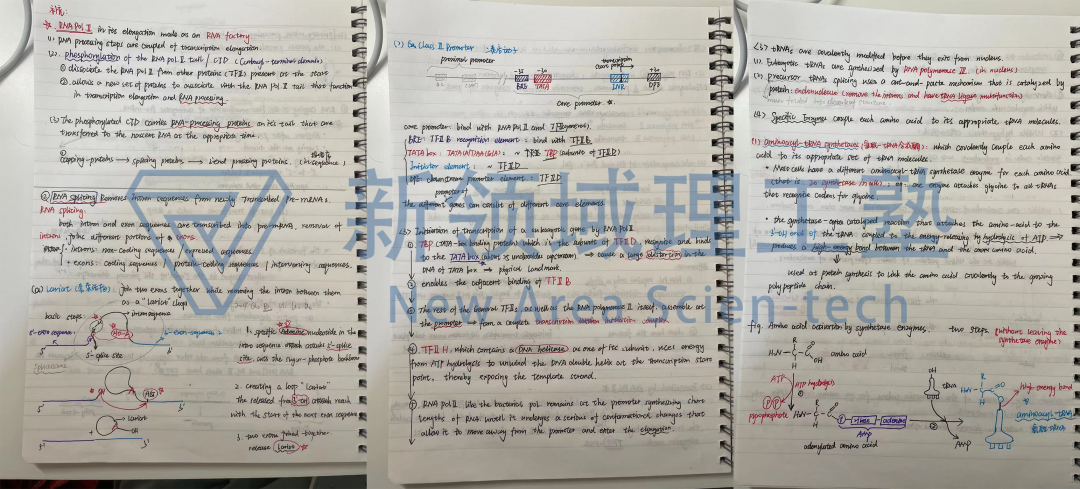 补充:
* RNA Pol II in its elongation mode as an RNA factory
(1) RNA processing steps are coupled of transcription elongation.
(2) phosphorylation of the RNA pol II tail / CTD (C-terminal-domain)
① dissociate the RNA pol II from other proteins (TFII) present at the start
② allows a new set of proteins to associate with the RNA Pol II tail that function
in transcription elongation and RNA processing
(3) The phosphorylated CTD carries RNA-processing proteins on its tail that are
transferred to the nascent RNA at the appropriate time.
capping-proteins → splicing proteins → 3'end processing proteins. (in sequence)
② RNA splicing Removes intron sequences from newly transcribed pre-mRNAs.
RNA splicing:
both intron and exon sequences are transcribed into pre-mRNA, removal of
intron, joins different portions of exons.
introns: non-coding sequences /
exons: coding sequences / protein-coding sequences / intervening sequences.
(a) Lariat: join two exons together while removing the intron between them
as a "lariat" (loop)
intron sequence
basic steps:
5'-exon sequence
3'-exon sequence
5'-splice site
1. specific Adenine nucleotide in the
intron sequence attack the 5'-splice
site, cuts the sugar-phosphate backbone
2. creating a loop "lariat"
the released 3'-OH attach reach
with the start of the next exon sequence
lariat
-OH
3. two exons joined together
release lariat
(1) Class II Promoter
proximal promoter
transcription
start point
BRE TATA INR DPE
core promoter *
core promoter: bind with RNA Pol II and TFII(general).
BRE: TFIIB recognition element: bind with TFIIB
TATA box: ~ TBP (subunit of TFIID)
Initiator element: ~ TFIID
DPE: downstream promoter element: TFIID
promoters
the different genes can consist of different core elements.
(2) Initiation of transcription of a eukaryotic gene by RNA Pol II
① TBP (TATA-box binding protein) which is the subunit of TFIID, recognize and binds
to the TATA box (about 25 nucleotides upstream) → cause a large distortion in the
DNA of TATA box → physical landmark.
② enables the adjacent binding of TFIIB
③ The rest of the General TFIIs, as well as the RNA polymerase II itself, assemble at
the promoter → form a complete transcription initiation complex
④ TFIIH, which contains a DNA helicase as one of its subunits, uses energy
from ATP hydrolysis to unwind the DNA double helix at the transcription start
point, thereby exposing the template strand.
⑤ RNA Pol II like the bacterial pol remains at the promoter synthesizing short
lengths of RNA until it undergoes a series of conformational changes that
allow it to move away from the promoter and enter the elongation.
<3> tRNAs are covalently modified before they exit from nucleus.
(1). Eukaryotic tRNAs are synthesized by RNA polymerase III (in nucleus)
(2). Precursor tRNAs splicing uses a cut-and-paste mechanism that is catalyzed by
protein: endonuclease (remove the introns and have tRNA ligase multifunction)
<4> Specific Enzymes couple each amino acid to its appropriate tRNA molecules.
(1) aminoacyl-tRNA synthetases (氨酰-tRNA合成酶): which covalently couple each amino
acid to its appropriate set of tRNA molecules.
• Most cells have a different aminoacyl-tRNA synthetase enzyme for each amino acid
(that is 20 synthetase in all); eg: one enzyme attaches glycine to all tRNAs
that recognize codons for glycine.
• the synthetase-catalyzed reaction that attaches the amino-acid to the
3'-OH end of the tRNA coupled to the energy-releasing by hydrolysis of ATP →
produces a high-energy bond between the tRNA and the amino acid.
used at protein synthesis to link the amino acid covalently to the growing
polypeptide chain.
fig. Amino acid activation by synthetase enzymes. two steps (without leaving the
synthetase enzyme)
amino acid
ATP
ATP hydrolysis
pyrophosphate
adenosine
AMP
adenylated amino acid
tRNA
AMP
high energy bond
aminoacyl-tRNA
氨酰-tRNA
新领域理塾
New Area Scien-tech